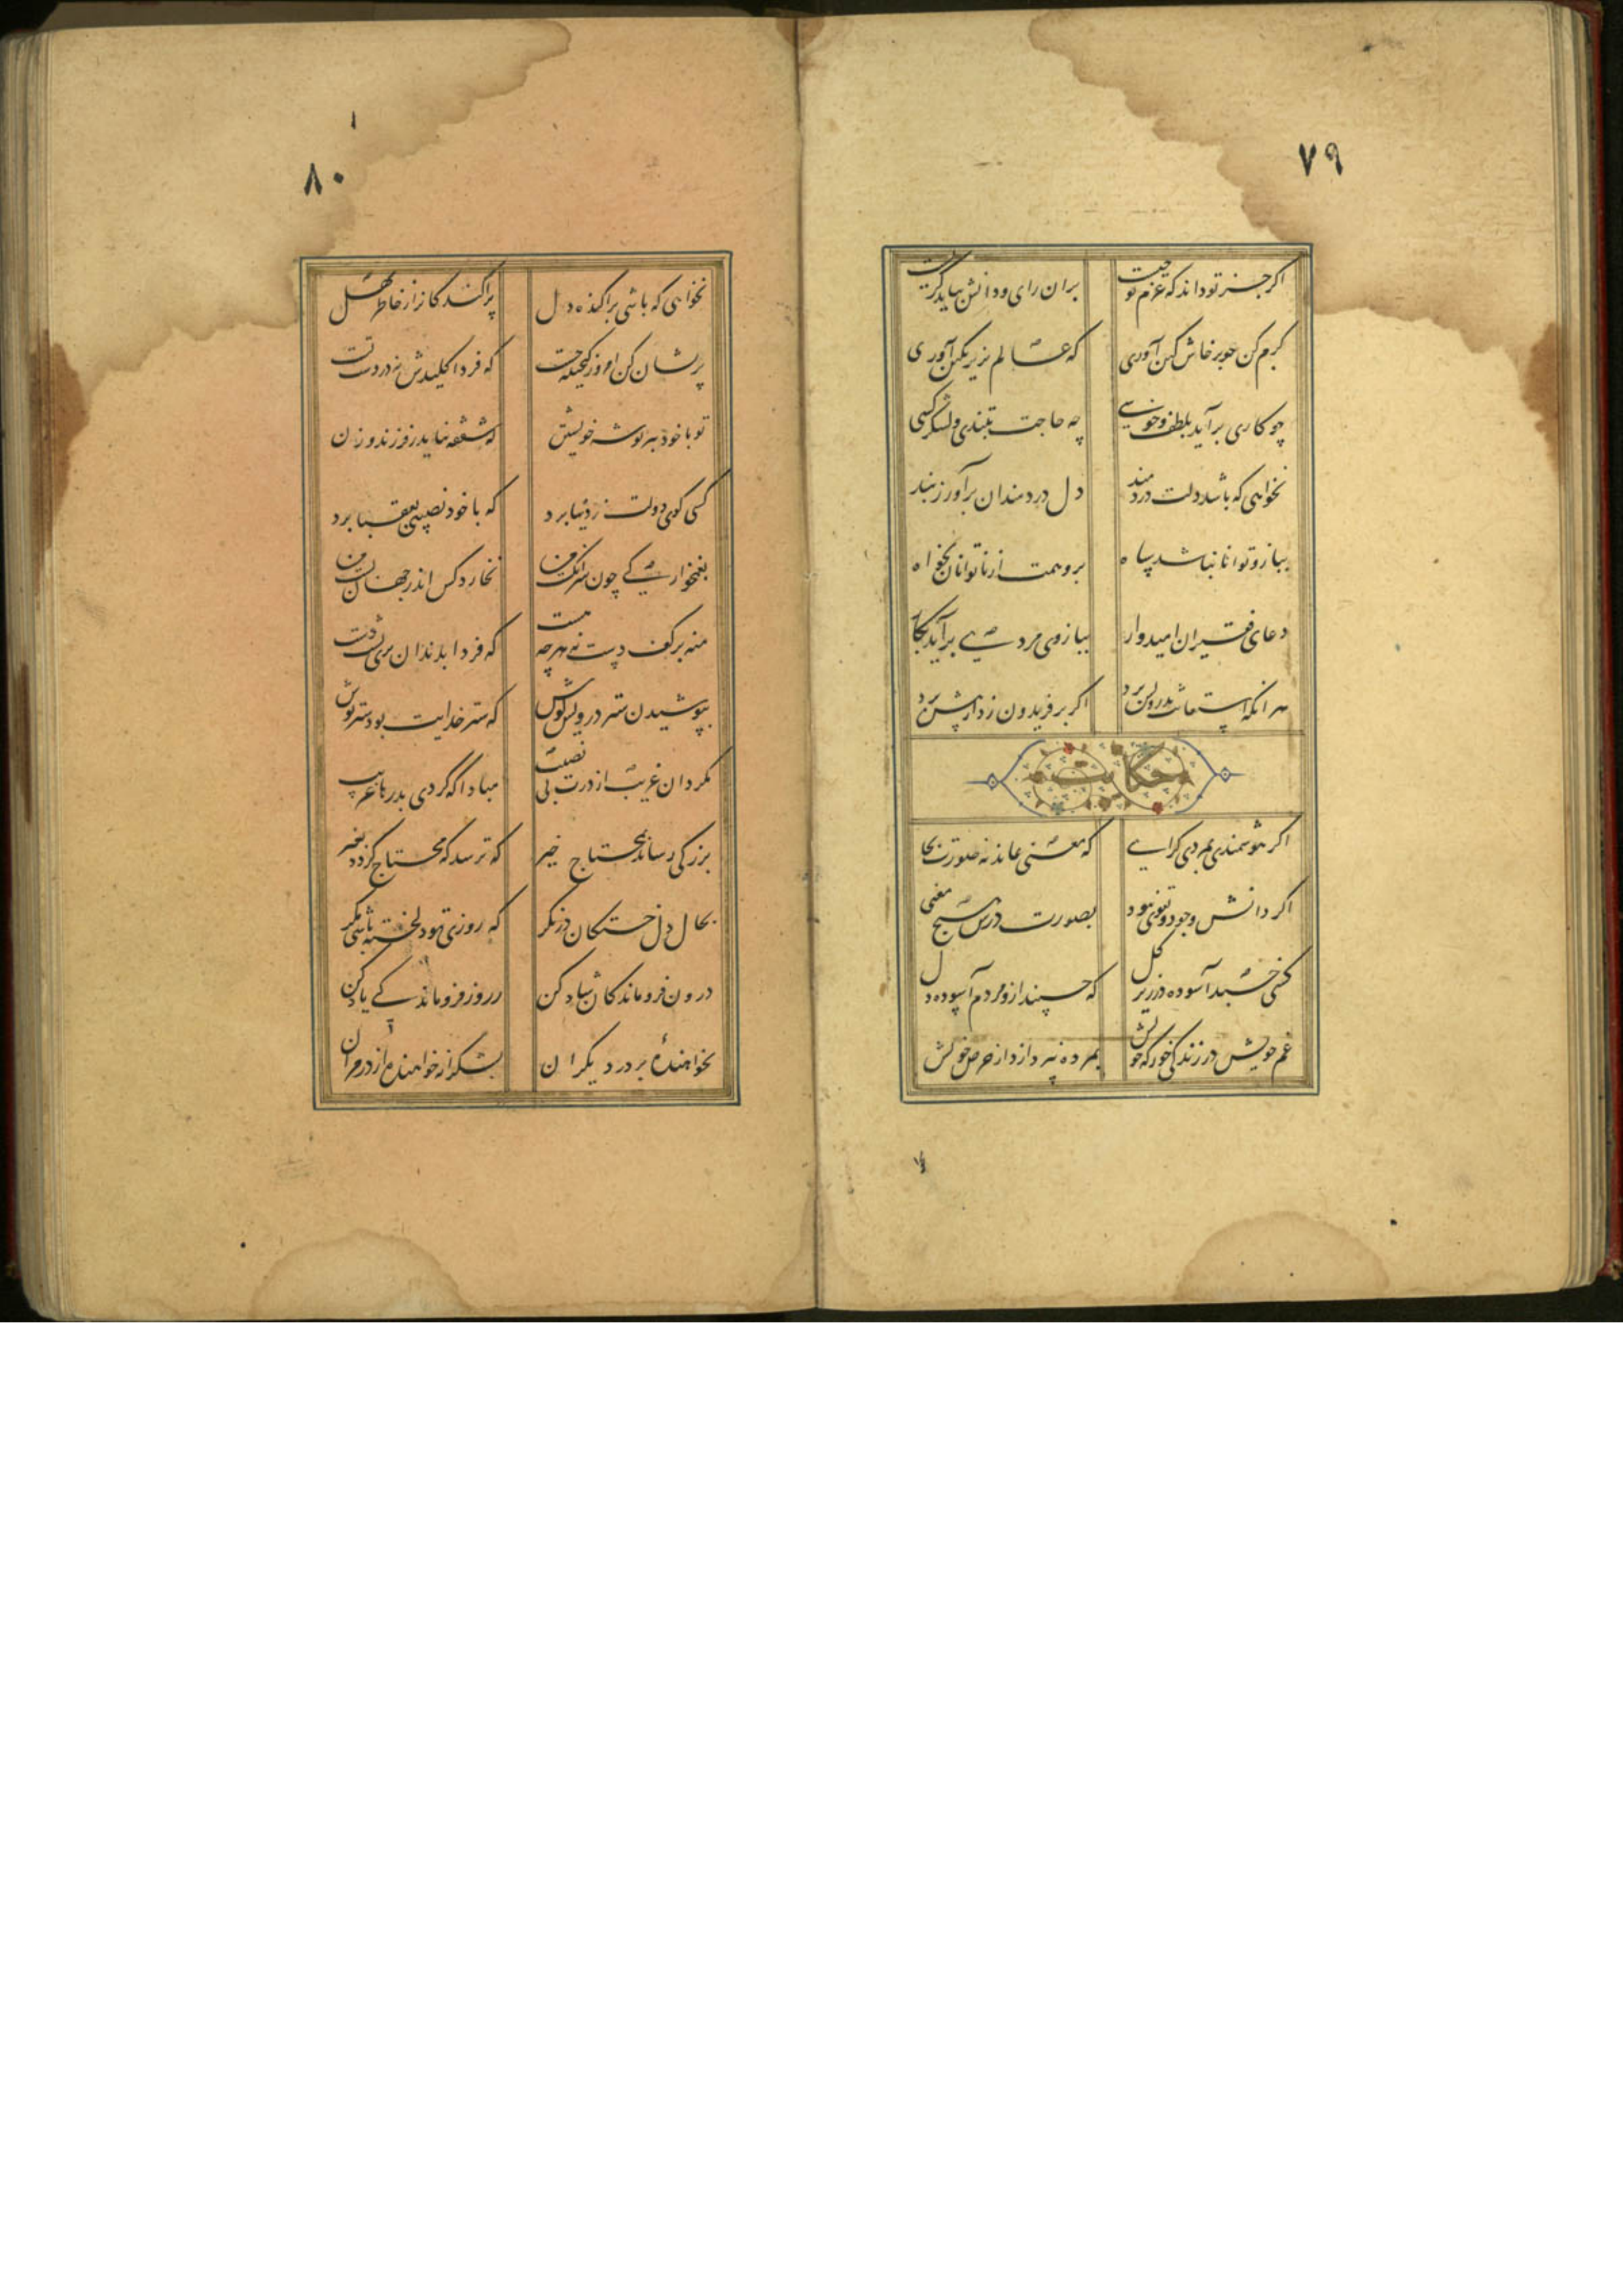 ۷۹
اکر جز تو داند که عزم تو چیست بران رای و دانش بباید کریست
کرم کن نه پرخاش و کین آوری که عالم بزیر نکین آوری
چو کاری برآید بلطف و خوشی چه حاجت بتندی و لشکر کشی
نخواهی که باشد دلت دردمند دل دردمندان برآور ز بند
ببازو توانا نباشد سپاه برو همت از ناتوانان بخواه
دعای فقیران امیدوار ببازوی مردی برآید بکار
هر آنکه استعانت بدرویش برد اکر بر فریدون زد از پیش برد
حکایت
اکر هوشمندی بمردی کرای که معنی بماند نه صورت بجا
اکر دانش وجود و تقوی نبود بصورت درش هیچ معنی
کسی خسبد آسوده در زیر کل که خسپند ازو مردم آسوده دل
غم خویش در زندکی خور که خویش بمرده نپردازد از حرص خویش
۸۰
نخواهی که باشی پراکنده دل پراکندکانرا ز خاطر مهل
پریشان کن امروز کنجینه چست که فردا کلیدش نه در دست تست
تو با خود ببر توشه خویشتن که شفقه نیاید ز فرزند و زن
کسی کوی دولت ز دنیا برد که با خود نصیبی بعقبا برد
بغمخوارکی چون سر انکشت من نخارد کس اندر جهان پشت من
منه بر کف دست نه هرچه هست که فردا بدندان بری پشت دست
بپوشیدن ستر درویش کوش که ستر خدایت بود ستر پوش
مکردان غریب از درت بی نصیب مبادا که کردی بدرها غریب
بزرکی رساند بمحتاج خیر که ترسد که محتاج کردد بغیر
بحال دل خستکان در نکر که روزی تو دلخسته باشی مکر
درون فروماندکان شاد کن ز روز فروماندکی یاد کن
نخواهندهٔ بر در دیکران بشکرانه خواهنده از در مران